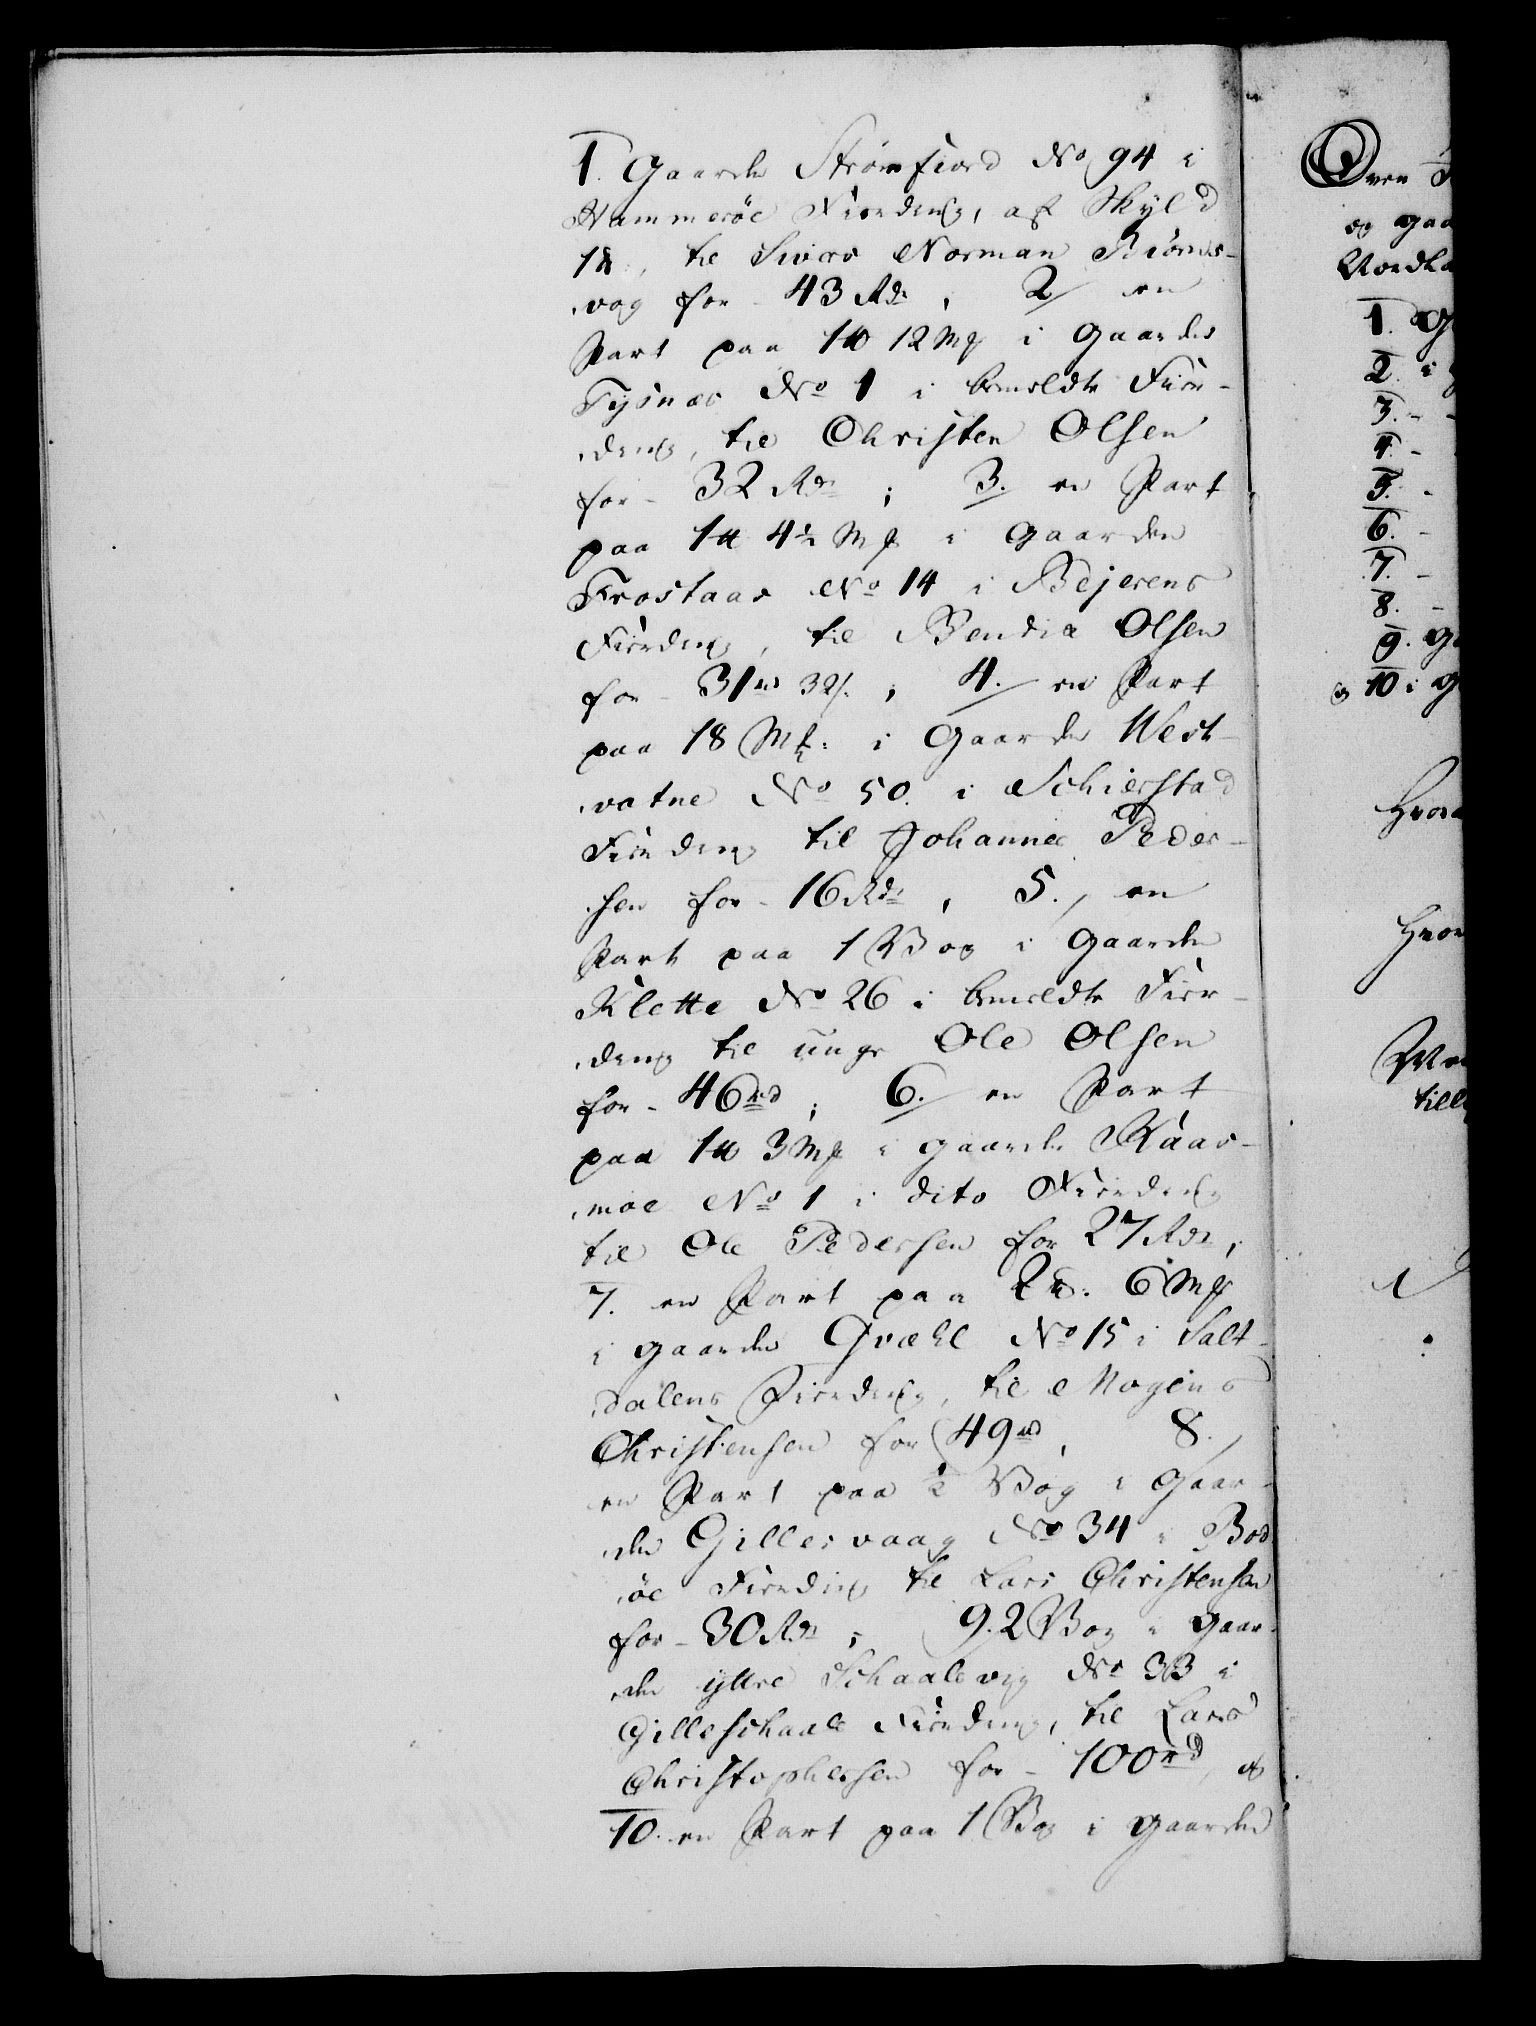 1. Gaarden Strømfiord No 94 i
Hammerøe Fierding, af Skyld
1 ℔, til Siver Norman Biørns-
vog for - 43 Rdr, 2/ en
Part paa 1 ℔ 12 Mk i Gaarden
Tysnæs No 1 i bemeldte Fier-
ding, til Christen Olsen
for - 32 Rdr; 3. en Part
paa 1 ℔ 4½ Mk i Gaarden
Frostaas No 14 i Bejerens
Fierding, til Bendix Olsen
for - 31 rd 32 s.; 4. en Part
paa 18 Mk: i Gaarden West-
vatne No 50. i Schierstad
Fierding til Johannes Peder-
sen for - 16 Rdr, 5., en
Part paa 1 Vog i Gaarden
Klette No 26 i bemeldte Fier-
ding til unge Ole Olsen
for - 46 rd; 6. en Part
paa 1 ℔ 3 Mk i Gaarden Kaas-
moe No 1 i dito Fierding
til Ole Pedersen for 27 Rdr,
7. en Part paa 2 ℔: 6 Mk
i Gaarden Qvæhl No 15 i Salt-
dalens Fierding, til Mogens
Christensen for 49 rd, 8.,
en Part paa ½ Vog i Gaar-
den Gillesvaag No 34 i Bod-
øe Fierding til Lars Christensen
for - 30 Rdr; 9. 2 Vog i Gaar-
den yttre Schaalsvig No 33 i
Gilleschaals Fierding, til Lars
Christophersen for - 100 rd, og
10. en Part paa 1 Vog i Gaarden
og
1.
2. i
3. -
4. -
5. -
6. -
7. -
8. -
9.
og 10 i